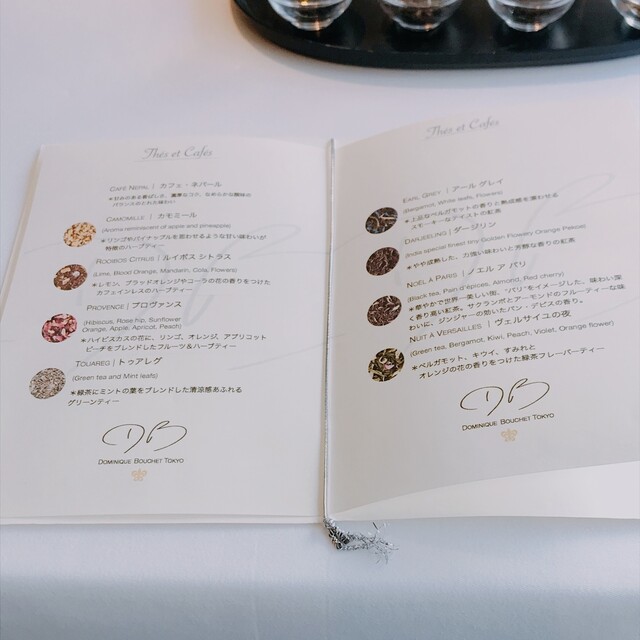 Thés et Cafés
CAFÉ NÉPAL | カフェ・ネパール
CAMOMILLE | カモミール
(Aroma reminiscent of apple and pineapple)
＊リンゴやパイナップルを思わせるような甘い味わいが
特徴のハーブティー
ROOIBOS CITRUS | ルイボス シトラス
(Lime, Blood Orange, Mandarin, Cola, Flowers)
＊レモン、ブラッドオレンジやコーラの花の香りをつけた
カフェインレスのハーブティー
PROVENCE | プロヴァンス
(Hibiscus, Rose hip, Sunflower
Orange, Apple, Apricot, Peach)
＊ハイビスカスの花に、リンゴ、オレンジ、アプリコット
ピーチをブレンドしたフルーツ＆ハーブティー
TOUAREG | トゥアレグ
(Green tea and Mint leafs)
＊緑茶にミントの葉をブレンドした清涼感あふれる
グリーンティー
DB
DOMINIQUE BOUCHET TOKYO
Thés et Cafés
EARL GREY | アール グレイ
(Bergamot, White leafs, Flowers)
＊上品なベルガモットの香りと熟成感を漂わせる
スモーキーなテイストの紅茶
DARJEELING | ダージリン
(India special finest tiny Golden Flowery Orange Pekoe)
＊やや成熟した、力強い味わいと芳醇な香りの紅茶
NOËL À PARIS | ノエル ア パリ
(Black tea, Pain d'épices, Almond, Red cherry)
＊華やかで世界一美しい街、“パリ”をイメージした、味わい深
く香り高い紅茶。サクランボとアーモンドのフルーティーな味
わいに、ジンジャーの効いたパン・デピスの香り。
NUIT À VERSAILLES | ヴェルサイユの夜
(Green tea, Bergamot, Kiwi, Peach, Violet, Orange flower)
＊ベルガモット、キウイ、すみれと
オレンジの花の香りをつけた緑茶フレーバーティー
DB
DOMINIQUE BOUCHET TOKYO